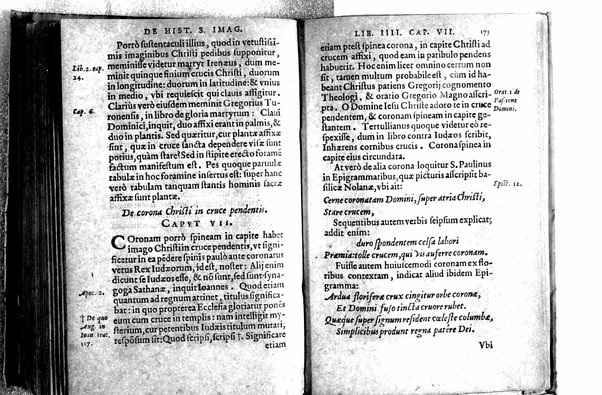 DE HIST. S. IMAG.
Porrò sustentaculi illius, quod in vetustissi-
mis imaginibus Christi pedibus supponitur,
Lib. 2. cap.
24.
meminisse videtur martyr Irenæus, dum me-
minit quinque finium crucis Christi, duorum
in longitudine: duorum in latitudine: & vnius
in medio, vbi requiescit qui clauis affigitur.
Clariùs verò eiusdem meminit Gregorius Tu-
Cap. 6.
ronensis, in libro de gloria martyrum: Claui
Dominici, inquit, duo affixi erant in palmis, &
duo in plantis. Sed quæritur, cur plantæ affixæ
sint, quæ in cruce sancta dependere visæ sunt
potius, quàm stare? Sed in stipite erecto foramē
factum manifestum est. Pes quoque paruulæ
tabulæ in hoc foramine insertus est: super hanc
verò tabulam tanquam stantis hominis sacræ
affixæ sunt plantæ.
De corona Christi in cruce pendentis.
CAPVT VII.
Coronam porrò spineam in capite habet
imago Christi in cruce pendentis, vt signi-
ficetur in ea pēdere spinis paulò ante coronatus
verus Rex Iudæorum, id est, noster: Alij enim
dicunt se Iudæos esse, & nō sunt, sed sunt syna-
Apoc. 2.
goga Sathanæ, inquit Ioannes. Quod etiam
quantum ad regnum attinet, titulus significa-
† De quo
Aug. in
Ioan trac.
117.
bat: in quo propterea Ecclesia gloriatur ponēs
eum cum cruce in templis: nam intelligit my-
sterium, cur petentibus Iudæis titulum mutari,
responsum sit: Quod scripsi, scripsi †. Significare
etiam
LIB. IIII. CAP. VII. 175
etiam ptest spinea corona, in capite Christi ad
crucem affixi, quod eam in patibulo pendens
habuerit. Hoc enim licet omnino certum non
sit, tamen multum probabile est, cùm id ha-
beant Christus patiens Gregorij cognomento
Theologi, & oratio Gregorio Magno ascri-
Orat. 1. de
Passione
Domini.
pta. O Domine Iesu Christe adoro te in cruce
pendentem, & coronam spineam in capite ge-
stantem. Tertullianus quoque videtur eò re-
spexisse, dum in libro contra Iudæos scribit,
Inhærens cornibus crucis. Corona spinea in
capite eius circundata.
At verò de alia corona loquitur S. Paulinus
in Epigrammatibus, quæ picturis ascripsit ba-
Epist. 12.
silicæ Nolanæ, vbi ait:
Cerne coronatam Domini, super atria Christi,
Stare crucem,
Sequentibus autem verbis seipsum explicat;
addit enim:
duro spondentem celsa labori
Præmia: tolle crucem, qui vis auferre coronam.
Fuisse autem huiuscemodi coronam ex flo-
ribus contextam, indicat aliud ibidem Epi-
gramma:
Ardua floriferæ crux cingitur orbe coronæ,
Et Domini fuso tincta cruore rubet.
Quæque super signum resident cæleste columbæ,
Simplicibus produnt regna patere Dei.
Vbi